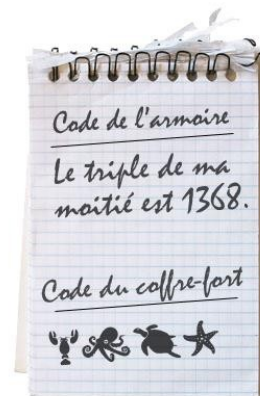 Code de l'armoire
Le triple de ma
moitié est 1368.
Code du coffre-fort